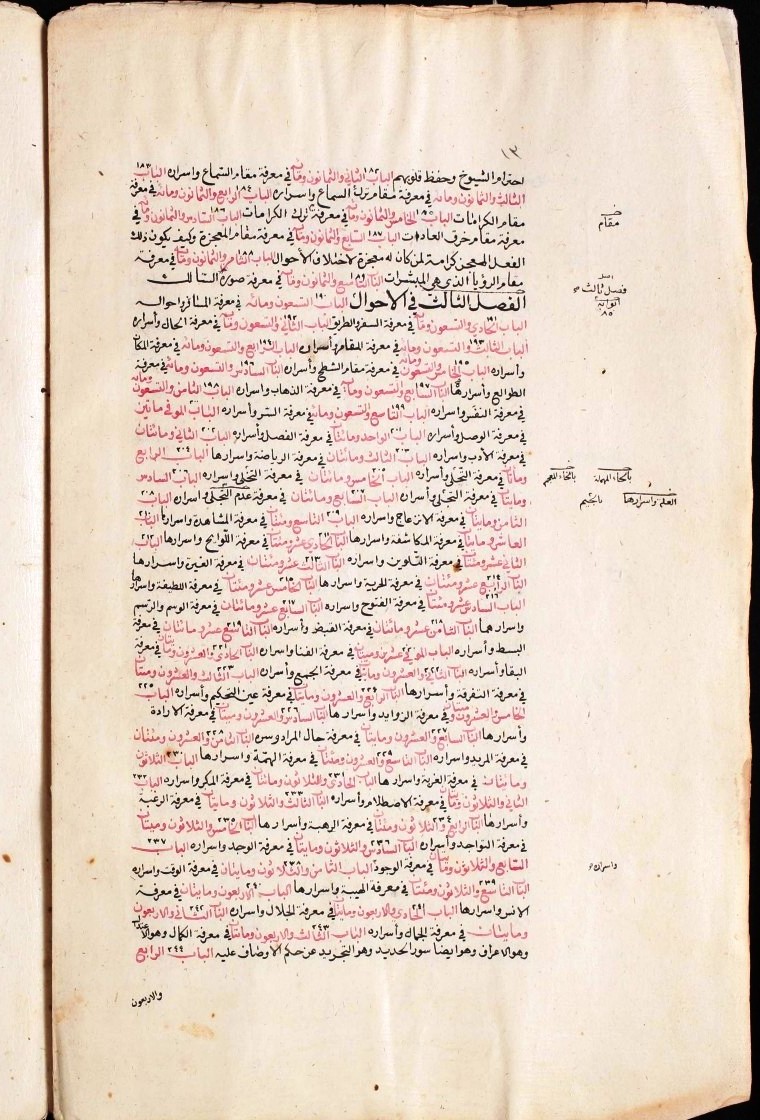 ١٣
احترام الشيوخ وحفظ قلوبهم الباب ١٨٢ الثاني والثمانون ومائة في معرفة مقام السماع واسراره الباب ١٨٣
الثالث والثمانون ومائة في معرفة مقام ترك السماع واسراره الباب ١٨٤ الرابع والثمانون ومائة في معرفة
مقام الكرامات الباب ١٨٥ الخامس والثمانون ومائة في معرفة ترك الكرامات الباب ١٨٦ السادس والثمانون ومائة في
معرفة مقام خرق العادات الباب ١٨٧ السابع والثمانون ومائة في معرفة مقام المعجزة وكيف يكون ذلك
الفعل المعجز كرامة لمن كان له معجزة لاختلاف الأحوال الباب ١٨٨ الثامن والثمانون ومائة في معرفة
مقام الرؤيا الذي هي المبشرات الباب ١٨٩ التاسع والثمانون ومائة في معرفة صورة السالك
الفصل الثالث في الاحوال الباب ١٩٠ التسعون ومائة في معرفة المسافر واحواله
الباب ١٩١ الحادي والتسعون ومائة في معرفة السفر والطريق الباب ١٩٢ الثاني والتسعون ومائة في معرفة الحال وأسراره
الباب ١٩٣ الثالث والتسعون ومائة في معرفة المقام وأسراره الباب ١٩٤ الرابع والتسعون ومائة في معرفة المكان
وأسراره الباب ١٩٥ الخامس والتسعون ومائة في معرفة مقام الشطح وأسراره الباب ١٩٦ السادس والتسعون ومائة في معرفة
الطوالع وأسرارها الباب ١٩٧ السابع والتسعون ومائة في معرفة الذهاب واسراره الباب ١٩٨ الثامن والتسعون ومائة
في معرفة النفس واسراره الباب ١٩٩ التاسع والتسعون ومائة في معرفة السر وأسراره الباب الموفي مائتين
في معرفة الوصل وأسراره الباب ٢٠١ الواحد ومائتان في معرفة الفصل وأسراره الباب ٢٠٢ الثاني ومائتان
في معرفة الأدب واسراره الباب ٢٠٣ الثالث ومائتان في معرفة الرياضة واسرارها الباب ٢٠٤ الرابع
ومائتان في معرفة التحلي وأسراره الباب ٢٠٥ الخامس ومائتان في معرفة التخلي واسراره الباب ٢٠٦ السادس
ومائتان في معرفة التجلي وأسراره الباب ٢٠٧ السابع ومائتان في معرفة واسراره الباب ٢٠٨
الثامن ومائتان في معرفة الانزعاج واسراره الباب ٢٠٩ التاسع ومائتان في معرفة المشاهدة واسرارها الباب ٢١٠
العاشر ومائتان في معرفة المكاشفة واسرارها الباب ٢١١ الحادي عشر ومائتان في معرفة اللوايح واسرارها الباب ٢١٢
الثاني عشر ومائتان في معرفة التلوين واسراره الباب ٢١٣ الثالث عشر ومئتان في معرفة الغيرة واسرارها
الباب ٢١٤ الرابع عشر ومئتان في معرفة الحرية واسرارها الباب ٢١٥ الخامس عشر ومئتان في معرفة اللطيفة واسرارها
الباب ٢١٦ السادس عشر ومئتان في معرفة الفتوح واسراره الباب ٢١٧ السابع عشر ومائتان في معرفة الوسم والرسم
واسرارهما الباب ٢١٨ الثامن عشر ومائتان في معرفة القبض وأسراره الباب ٢١٩ التاسع عشر ومائتان في معرفة
البسط وأسراره الباب ٢٢٠ الموفي عشرين ومئتان في معرفة الفنا واسراره الباب ٢٢١ الحادي والعشرون ومائتان في معرفة
البقا وأسراره الباب ٢٢٢ الثاني والعشرون ومائتان في معرفة الجمع وأسراره الباب ٢٢٣ الثالث والعشرون ومئتان
في معرفة التفرقة وأسرارها الباب ٢٢٤ الرابع والعشرون ومائتان في معرفة عين التحكيم وأسراره الباب ٢٢٥
الخامس والعشرون ومئتان في معرفة الزوايد واسرارها الباب ٢٢٦ السادس والعشرون ومئتان في معرفة الارادة
وأسرارها الباب ٢٢٧ السابع والعشرون ومائتان في معرفة حال المراد وسره الباب ٢٢٨ الثامن والعشرون ومئتان
في معرفة المريد واسراره الباب ٢٢٩ التاسع والعشرون ومئتان في معرفة الهمة واسرارها الباب ٢٣٠ الثلاثون
ومائتان في معرفة الغربة واسرارها الباب ٢٣١ الحادي والثلاثون ومائتان في معرفة المكر واسراره الباب ٢٣٢
الثاني والثلاثون ومائتان في معرفة الاصطلام وأسراره الباب ٢٣٣ الثالث والثلاثون ومائتان في معرفة الرغبة
وأسرارها الباب ٢٣٤ الرابع والثلاثون ومئتان في معرفة الرهبة وأسرارها الباب ٢٣٥ الخامس والثلاثون ومئتان
في معرفة التواجد وأسراره الباب ٢٣٦ السادس والثلاثون ومائتان في معرفة الوجد واسراره الباب ٢٣٧
السابع والثلاثون ومائتان في معرفة الوجود الباب ٢٣٨ الثامن والثلاثون ومائتان في معرفة الوقت واسراره
الباب ٢٣٩ التاسع والثلاثون ومئتان في معرفة الهيبة واسرارها الباب ٢٤٠ الاربعون ومائتان في معرفة
الانس واسرارها الباب ٢٤١ الحادي والاربعون ومائتان في معرفة الجلال واسراره الباب ٢٤٢ الثاني والاربعون
ومائتان في معرفة الجمال وأسراره الباب ٢٤٣ الثالث والاربعون ومائتان في معرفة الكمال وهو الاعتدال
وهو الاعراف وهو ايضا سور الحديد وهو التجريد عن حكم الاوصاف عليه الباب ٢٤٤ الرابع
والاربعون
مقام
فصل ثالث
٨٥
بالحاء المهملة
بالخاء المعجم
العلة واسرارها
بالجيم
واسراره